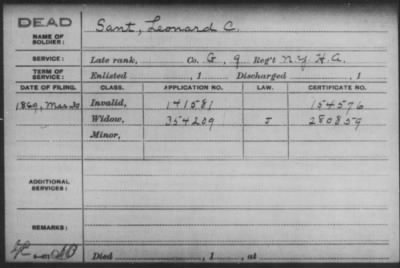 DEAD
NAME OF SOLDIER: Sant, Leonard C.
SERVICE: Late rank, Co. G, 9 Reg't N.Y. H.A.
TERM OF SERVICE: Enlisted , 1 Discharged , 1
DATE OF FILING. CLASS. APPLICATION NO. LAW. CERTIFICATE NO.
1869, Mar. 30 Invalid, 141581 154576
Widow, 354209 J 280859
Minor,
ADDITIONAL SERVICES:
REMARKS:
Died , 1 , at